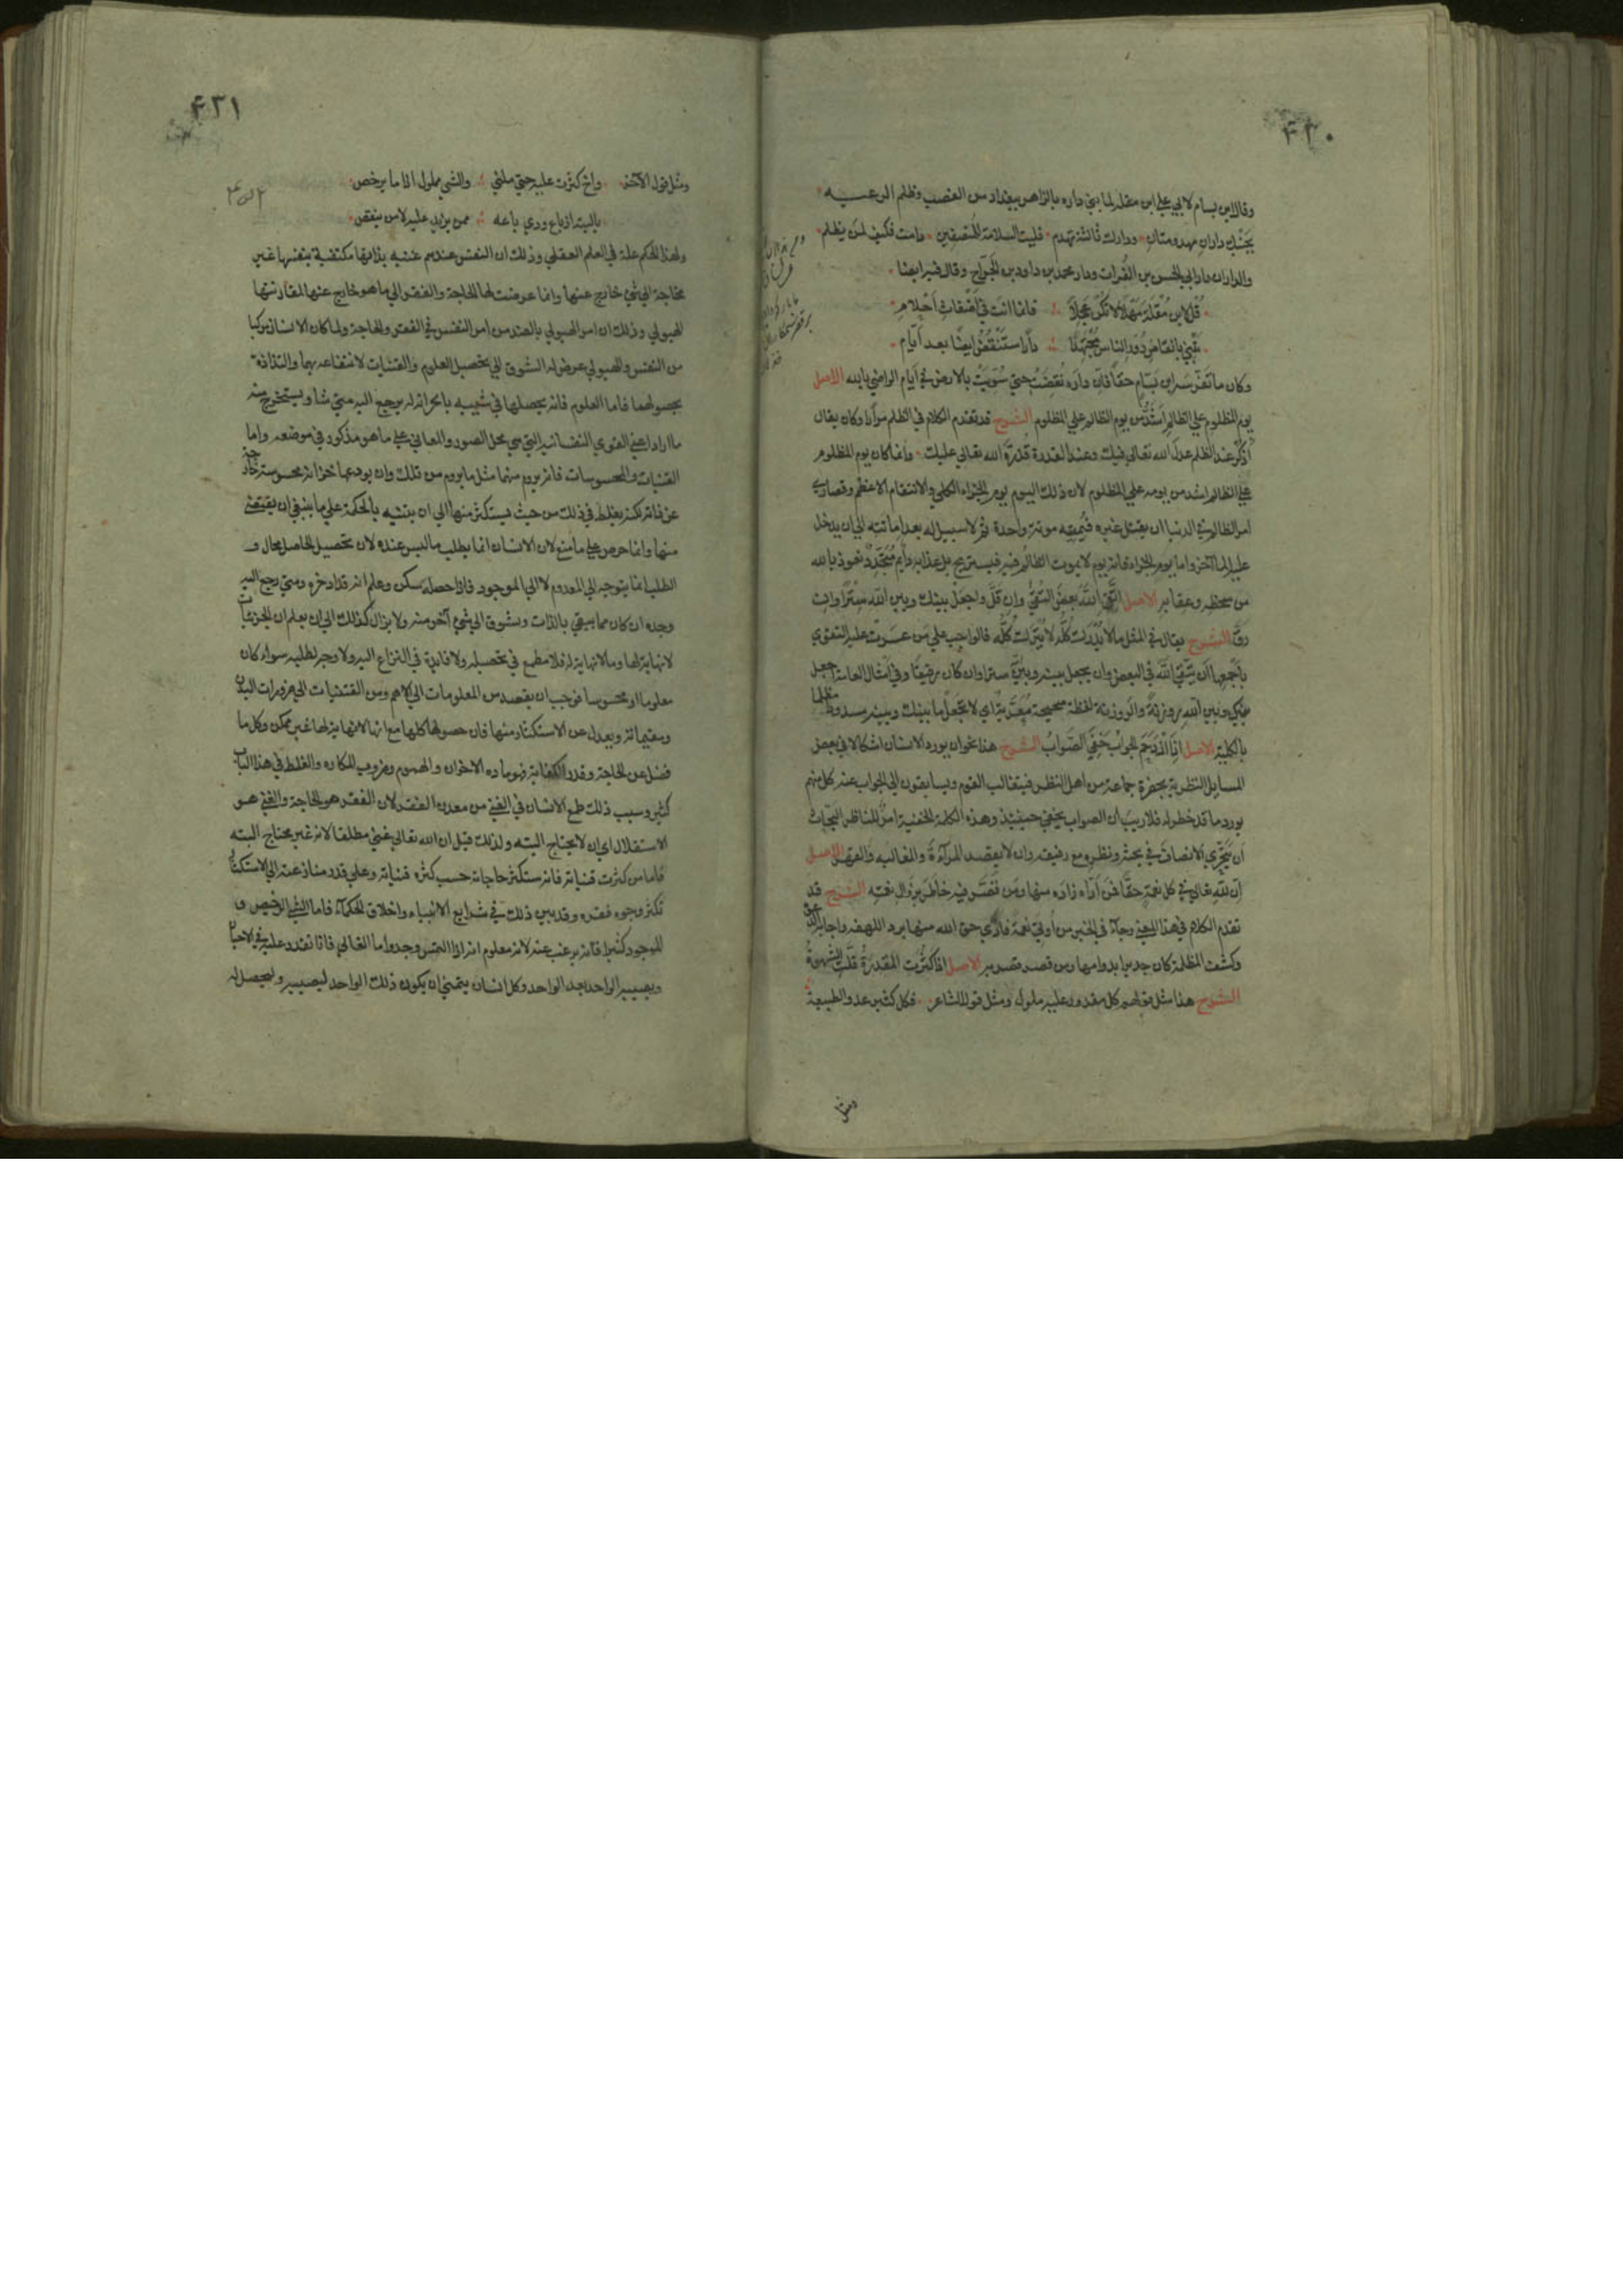 ٤٣٠
وقال ابن بسام لابي علي ابن مقلة لما بني داره بالزاهر ببغداد من الغصب وظلم الرعيه
بجنبك داران مهدومتان ودارك ثالثة تهدم فليت السلامة للمنصفين دامت فكيف لمن يظلم
والداران دار ابي الحسن بن الفرات ودار محمد بن داود بن الجراح وقال فيه ايضا
قل لابن مقلة مهلا لا تكن عجلا فانما انت في اضغاث احلام
تبني بانقاض دور الناس مجتهدا دارا ستنقض ايضا بعد ايام
وكان ما تفرسه ابن بسام حقا فان داره نقضت حتي سويت بالارض في ايام الراضي بالله الاصل
يوم المظلوم علي الظالم اشد من يوم الظالم علي المظلوم الشرح قد تقدم الكلام في الظلم مرارا وكان يقال
اذكر عند الظلم عدل الله تعالي فيك وعند القدرة قدرة الله تعالي عليك وانما كان يوم المظلوم
علي الظالم اشد من يومه علي المظلوم لان ذلك اليوم يوم الجزاء الكلي والانتقام الاعظم وقصاري
امر الظالم في الدنيا ان يقتل غيره فيميته موتة واحدة ثم لا سبيل له بعد اماتته الي ان يدخل
عليه الما آخر واما يوم الجزاء فانه يوم لا يموت الظالم فيه فيستريح بل عذابه دايم متجدد نعوذ بالله
من سخطه وعقابه الاصل اتق الله بعض التقي وان قل واجعل بينك وبين الله سترا وان
رق الشرح يقال في المثل ما لا يدرك كله لا يترك كله فالواجب علي من عسرت عليه التقوي
باجمعها ان يتقي الله في البعض وان يجعل بينه وبينه سترا وان كان رقيقا وفي امثال العامة اجعل
بينك وبين الله روزنة والروزنة لفظة صحيحة معربة اي لا تجعل ما بينك وبينه مسدودا مظلما
بالكلية الاصل اذا ازدحم الجواب خفي الصواب الشرح هذا نحو ان يورد الانسان اشكالا في بعض
المسايل النظرية بحضرة جماعة من اهل النظر فيتغالب القوم ويسابقون الي الجواب عنه كل منهم
يورد ما قد خطر له فلا ريب ان الصواب يخفي حينئذ وهذه الكلمة الخفية امر للناظر البحاث
ان يتحري الانصاف في بحثه ونظره مع رفيقه وان لا يقصد المرآءة والمغالبه والقهر الاصل
ان لله تعالي في كل نعمة حقا فمن اداه زاده منها ومن قصر فيه خاطر بزوال نعمته الشرح قد
تقدم الكلام في هذا المعني وجآء في الخبر من اوتي نعمة فادي حق الله منها برد اللهفه واجابة الدعوة
وكشف المظلمة كان جديرا بدوامها ومن قصر قصر به الاصل اذا كثرت المقدرة قلت الشهوة
الشرح هذا مثل قولهم كل مقدور عليه مملول ومثل قول الشاعر فكل كثير عدو الطبيعة
ومثل
٤٣١
ومثل قول الآخر واخ كثرت عليه حتي ملني والشي مملول اذا ما يرخص
يا ليته اذ باع ودي باعه ممن يزيد عليه لا من ينقص
ولهذا الحكم علة في العلم العقلي وذلك ان النفس عندهم غنيه بذاتها مكتفية بنفسها غير
محتاجة الي شي خارج عنها وانما عرضت لها الحاجة والفقر الي ما هو خارج عنها لمقارنتها
الهيولي وذلك ان امر الهيولي بالضد من امر النفس في الفقر والحاجة ولما كان الانسان مركبا
من النفس والهيولي عرض له الشوق الي تحصيل العلوم والقنيات لانتفاعه بهما والتذاذه
بحصولهما فاما العلوم فانه يحصلها في شبيه بالخزانة له يرجع اليه متي شا ويستخرج منه
ما اراد اعني القوي النفسانيه التي هي محل الصور والمعاني علي ما هو مذكور في موضعه واما
القنيات والمحسوسات فانه يروم منها مثل ما يروم من تلك وان يودعها خزانة محسوسة خارجة
عن ذاته لكنه يغلط في ذلك من حيث يستكثر منها الي ان يتنبه بالحكمة علي ما ينبغي ان يقتني
منها وانما حرص علي ما منع لان الانسان انما يطلب ما ليس عنده لان تحصيل الحاصل محال و
الطلب انما يتوجه الي المعدوم لا الي الموجود فاذا حصله سكن وعلم انه قد ادخره ومتي رجع اليه
وجده ان كان مما يبقي بالذات وتشوق الي شي آخر منه ولا يزال كذلك الي ان يعلم ان الجزئيات
لا نهاية لها وما لا نهاية له فلا مطمع في تحصيله ولا فايدة في النزاع اليه ولا وجه لطلبه سواء كان
معلوما او محسوسا فوجب ان يقصد من المعلومات الي الاهم ومن القتنيات الي ضرورات البدن
ومقيماته ويعدل عن الاستكثار منها فان حصولها كلها مع انها لا نهاية لها غير ممكن وكل ما
فضل عن الحاجة وقدر الكفاية فهو مادة الاحزان والهموم وضروب المكاره والغلط في هذا الباب
كثير وسبب ذلك طمع الانسان في الغني من معدن الفقر لان الفقر هو الحاجة والغني هو
الاستقلال اي ان لا يحتاج اليته ولذلك قيل ان الله تعالي غني مطلقا لانه غير محتاج البته
فاما من كثرت قنياته فانه يستكثر حاجاته حسب كثرة قنياته وعلي قدر منازعته الي الاستكثار
تكثر وجوه فقره وقد بين ذلك في شرايع الانبياء واخلاق الحكمآء فاما الشي الرخيص و
الموجود كثيرا فانه يرغب عنه لانه معلوم انه اذا التمس وجد واما الغالي فانما يقدر عليه في الاحيان
ويصيبه الواحد بعد الواحد وكل انسان يتمني ان يكون ذلك الواحد ليصيبه وليحصل له